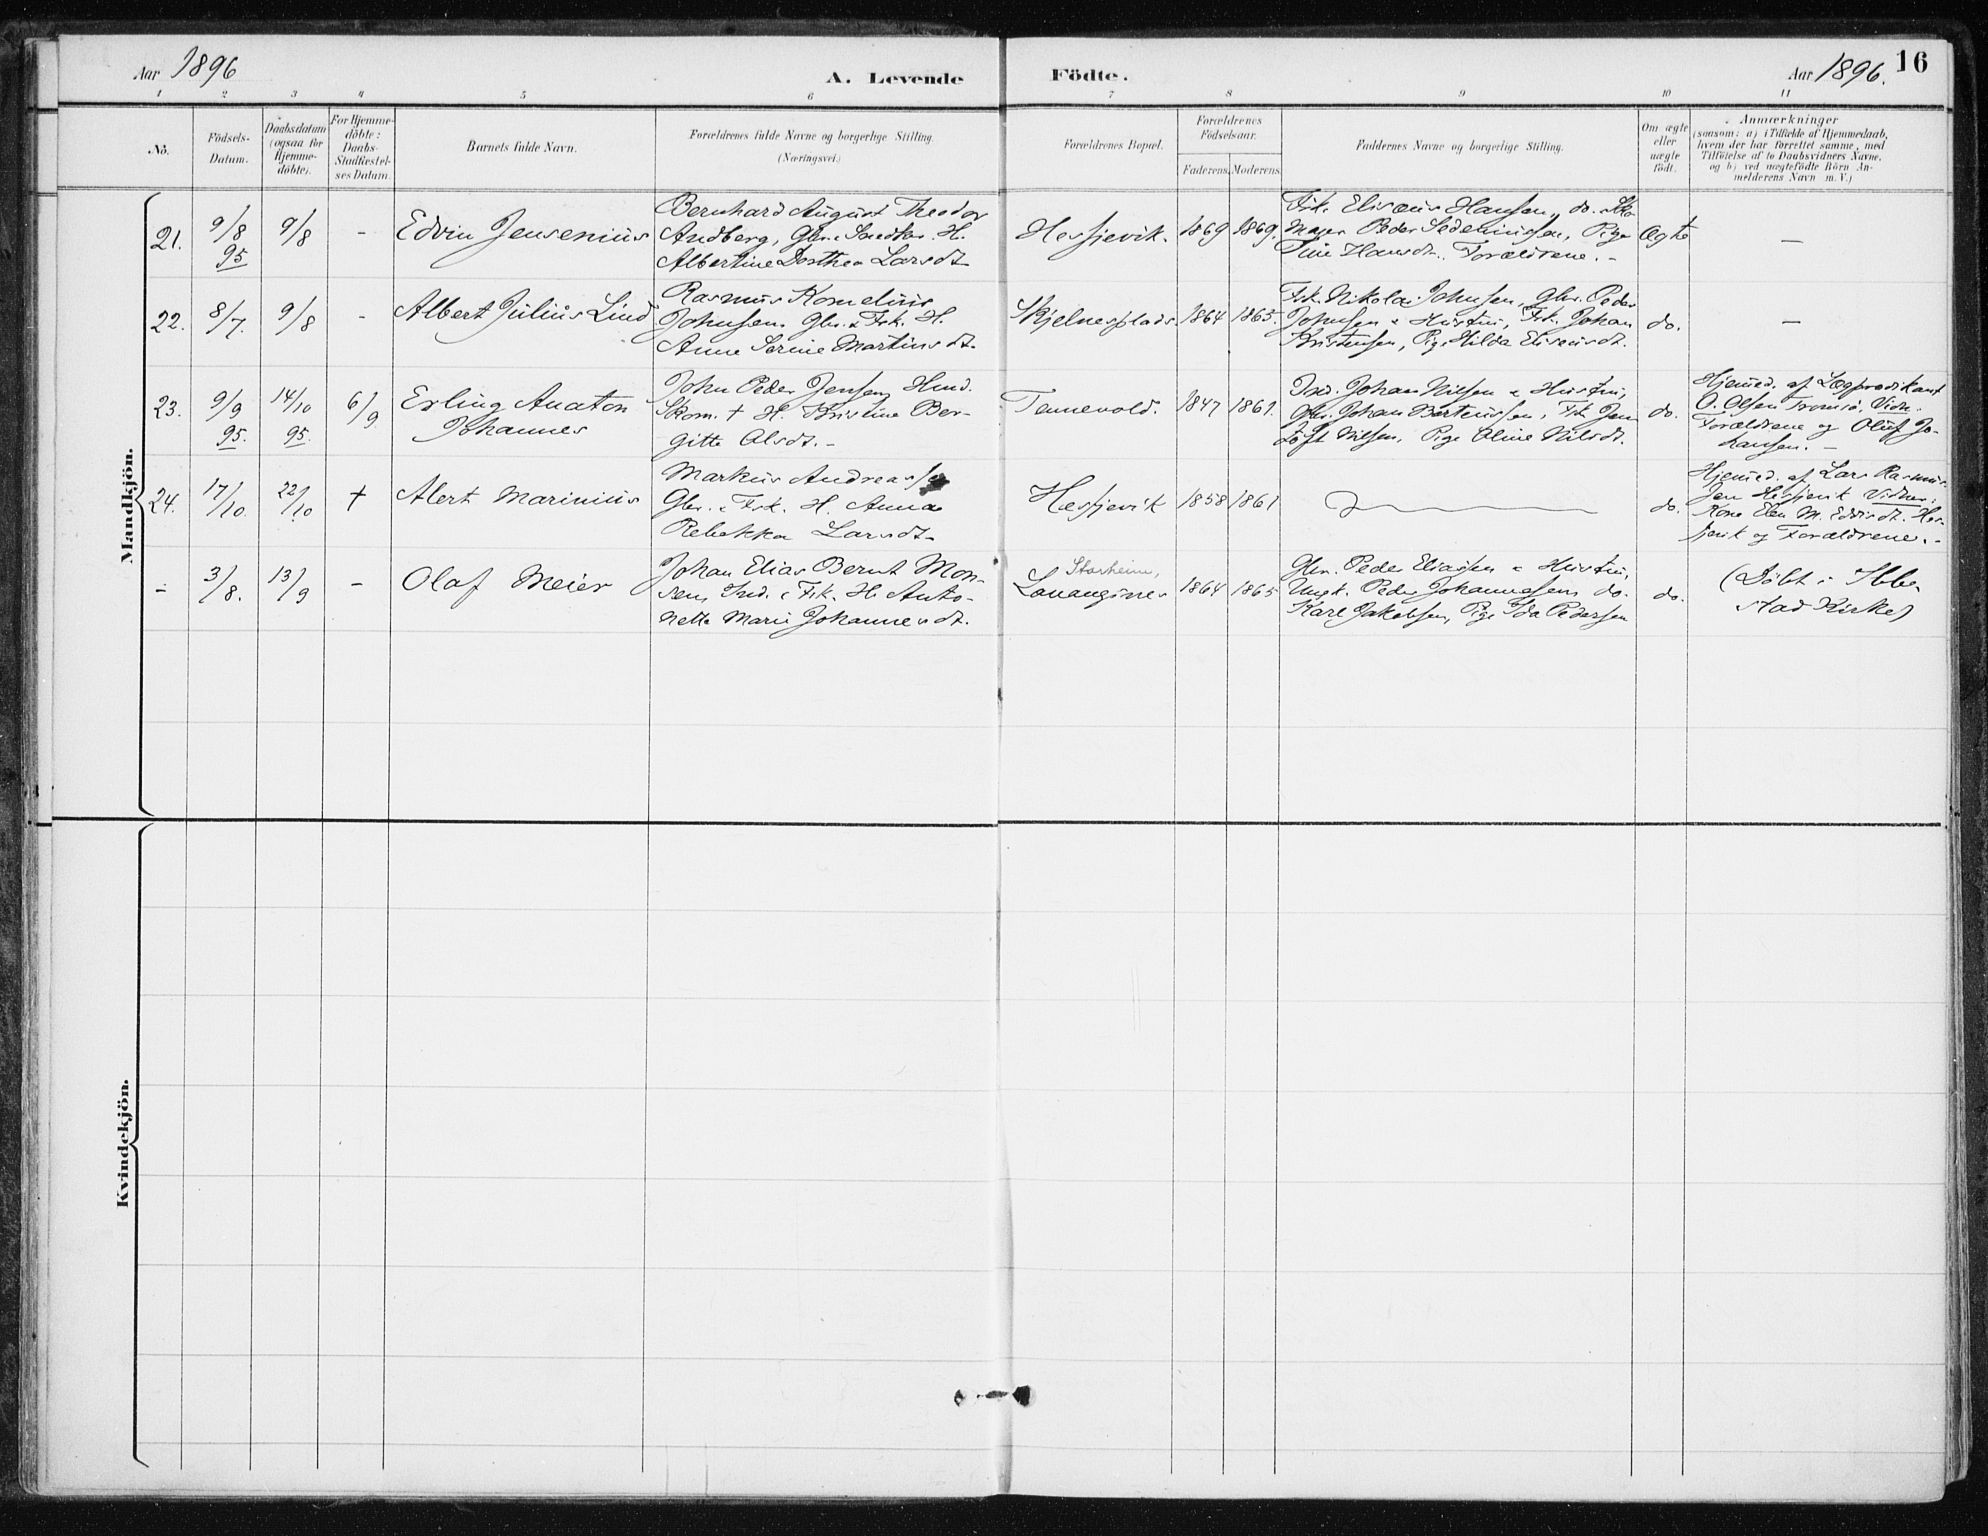 Aar 1896
A. Levende Födte.
Aar 1896.
16
1 2 3 4 5 6 7 8 9 10 11
No.
Födsels-
Datum.
Daabsdatum
(ogsaa for
Hjemme-
döbte).
For Hjemme-
döbte:
Daabs-
Stadfæstel-
ses Datum.
Barnets fulde Navn.
Forældrenes fulde Navne og borgerlige Stilling.
(Næringsvei.)
Forældrenes Bopæl.
Forældrenes
Födselsaar.
Faderens. Moderens.
Faddernes Navne og borgerlige Stilling.
Om ægte
eller
uægte
födt.
Anmærkninger
(saasom: a) i Tilfælde af Hjemmedaab,
hvem der har forrettet samme, med
Tilföielse af to Daabsvidners Navne,
og b) ved uægtefödte Börn An-
melderens Navn m. V.)
Mandkjön.
21.
9/8
95
9/8
-
Edvin Jensenius
Bernhard August Theodor
Andberg, Gbr. H.
Albertine Dorthea Larsdt.
Hesjevik.
1869
1869.
Fsk. Elisæus Hansen, do.
Peder Pige
Tine Hansdt. Forældrene. -
Ægte
-
22.
8/7.
9/8
-
Albert Julius Lind
Rasmus Kornelius
Johnsen. Gbr. & Fsk. H.
Anne Serine Martinsdt.
Skjelnesplads.
1864
1865.
Fsk. Nikolai Johnsen, Gbr. Peder
Johnsen & Hustru, Fsk. Johan
Kristensen, Pige Hilda
do.
-
23.
9/9
95.
14/10
95.
6/9
Erling Anaton
Johannes
John Peder Jensen
H. Kristine Ber-
gitte Olsdt. -
Tennevold.
1847
1861.
Ind. Johan Nilsen & Hustru,
Gbr. Johan Fsk. Jen
Nilsen, Pige Oline Nilsdt.
do.
Hjemed. af Lægprædikant
O. Olsen Tromsö. Vidn.
Forældrene og Oluf Jo-
hansen. -
24.
17/10.
22/10
+
Alert Marinius
Markus Andreassen
Gbr. & Fsk. H. Anna
Rebekka Larsdt.
Hesjevik
1858
1861
do.
Hjemed. af Lars Rasmus-
sen Hesjevik Vidner:
Kone Elen M. Hes-
jevik og Forældrene. -
-
3/8.
13/9
-
Olaf Meier
Johan Elias Bernt Mon-
sen, Ind. & Fsk. H. Anto-
nette Marie Johannesdt.
Storheim,
Lavangsnes
1864
1865
Gbr. Peder Eliassen & Hustru,
Ungk. Peder Johannesen, do.
Karl Jakobsen, Pige Ida Pedersen
do.
(Döbt i Ibbe-
stad Kirke)
Kvindekjön.